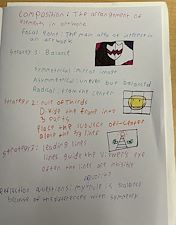 Composition: The arrangement of
elements in artwork.
Focal Point: The main area of interest in
an artwork
Strategy 1: Balance
Symmetrical: mirror image
Asymmetrical: uneven but balanced
Radical: from the center
Strategy 2: Rule of Thirds
Divide the frame into
3 parts
Place the subject off-center
along the 1/3 lines
Strategy 3: leading lines
lines guide the viewers eye
often the lines are invisible
Reflection questions: my style is balance
because of
with symmetry